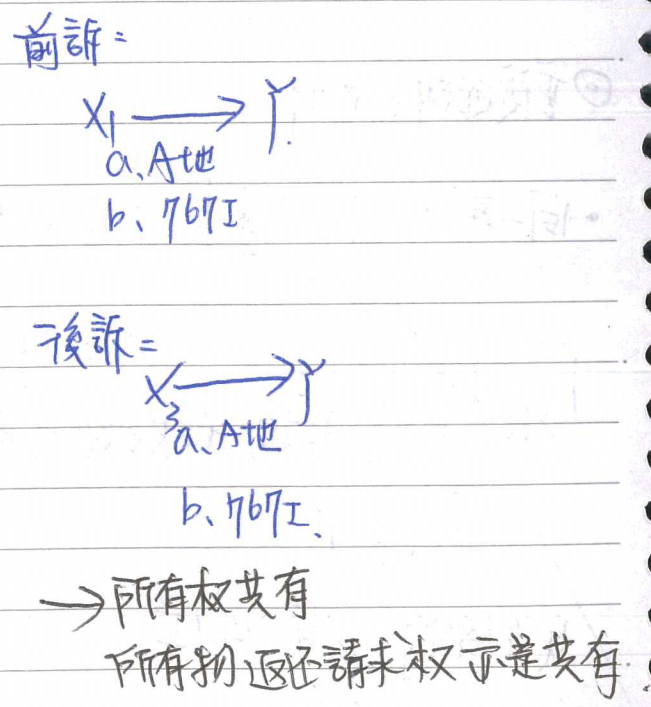 前訴：
X1 → Y.
a、A地
b、767I
後訴：
X3 → Y
a、A地
b、767I、
→所有权共有
所有物返还請求权亦是共有